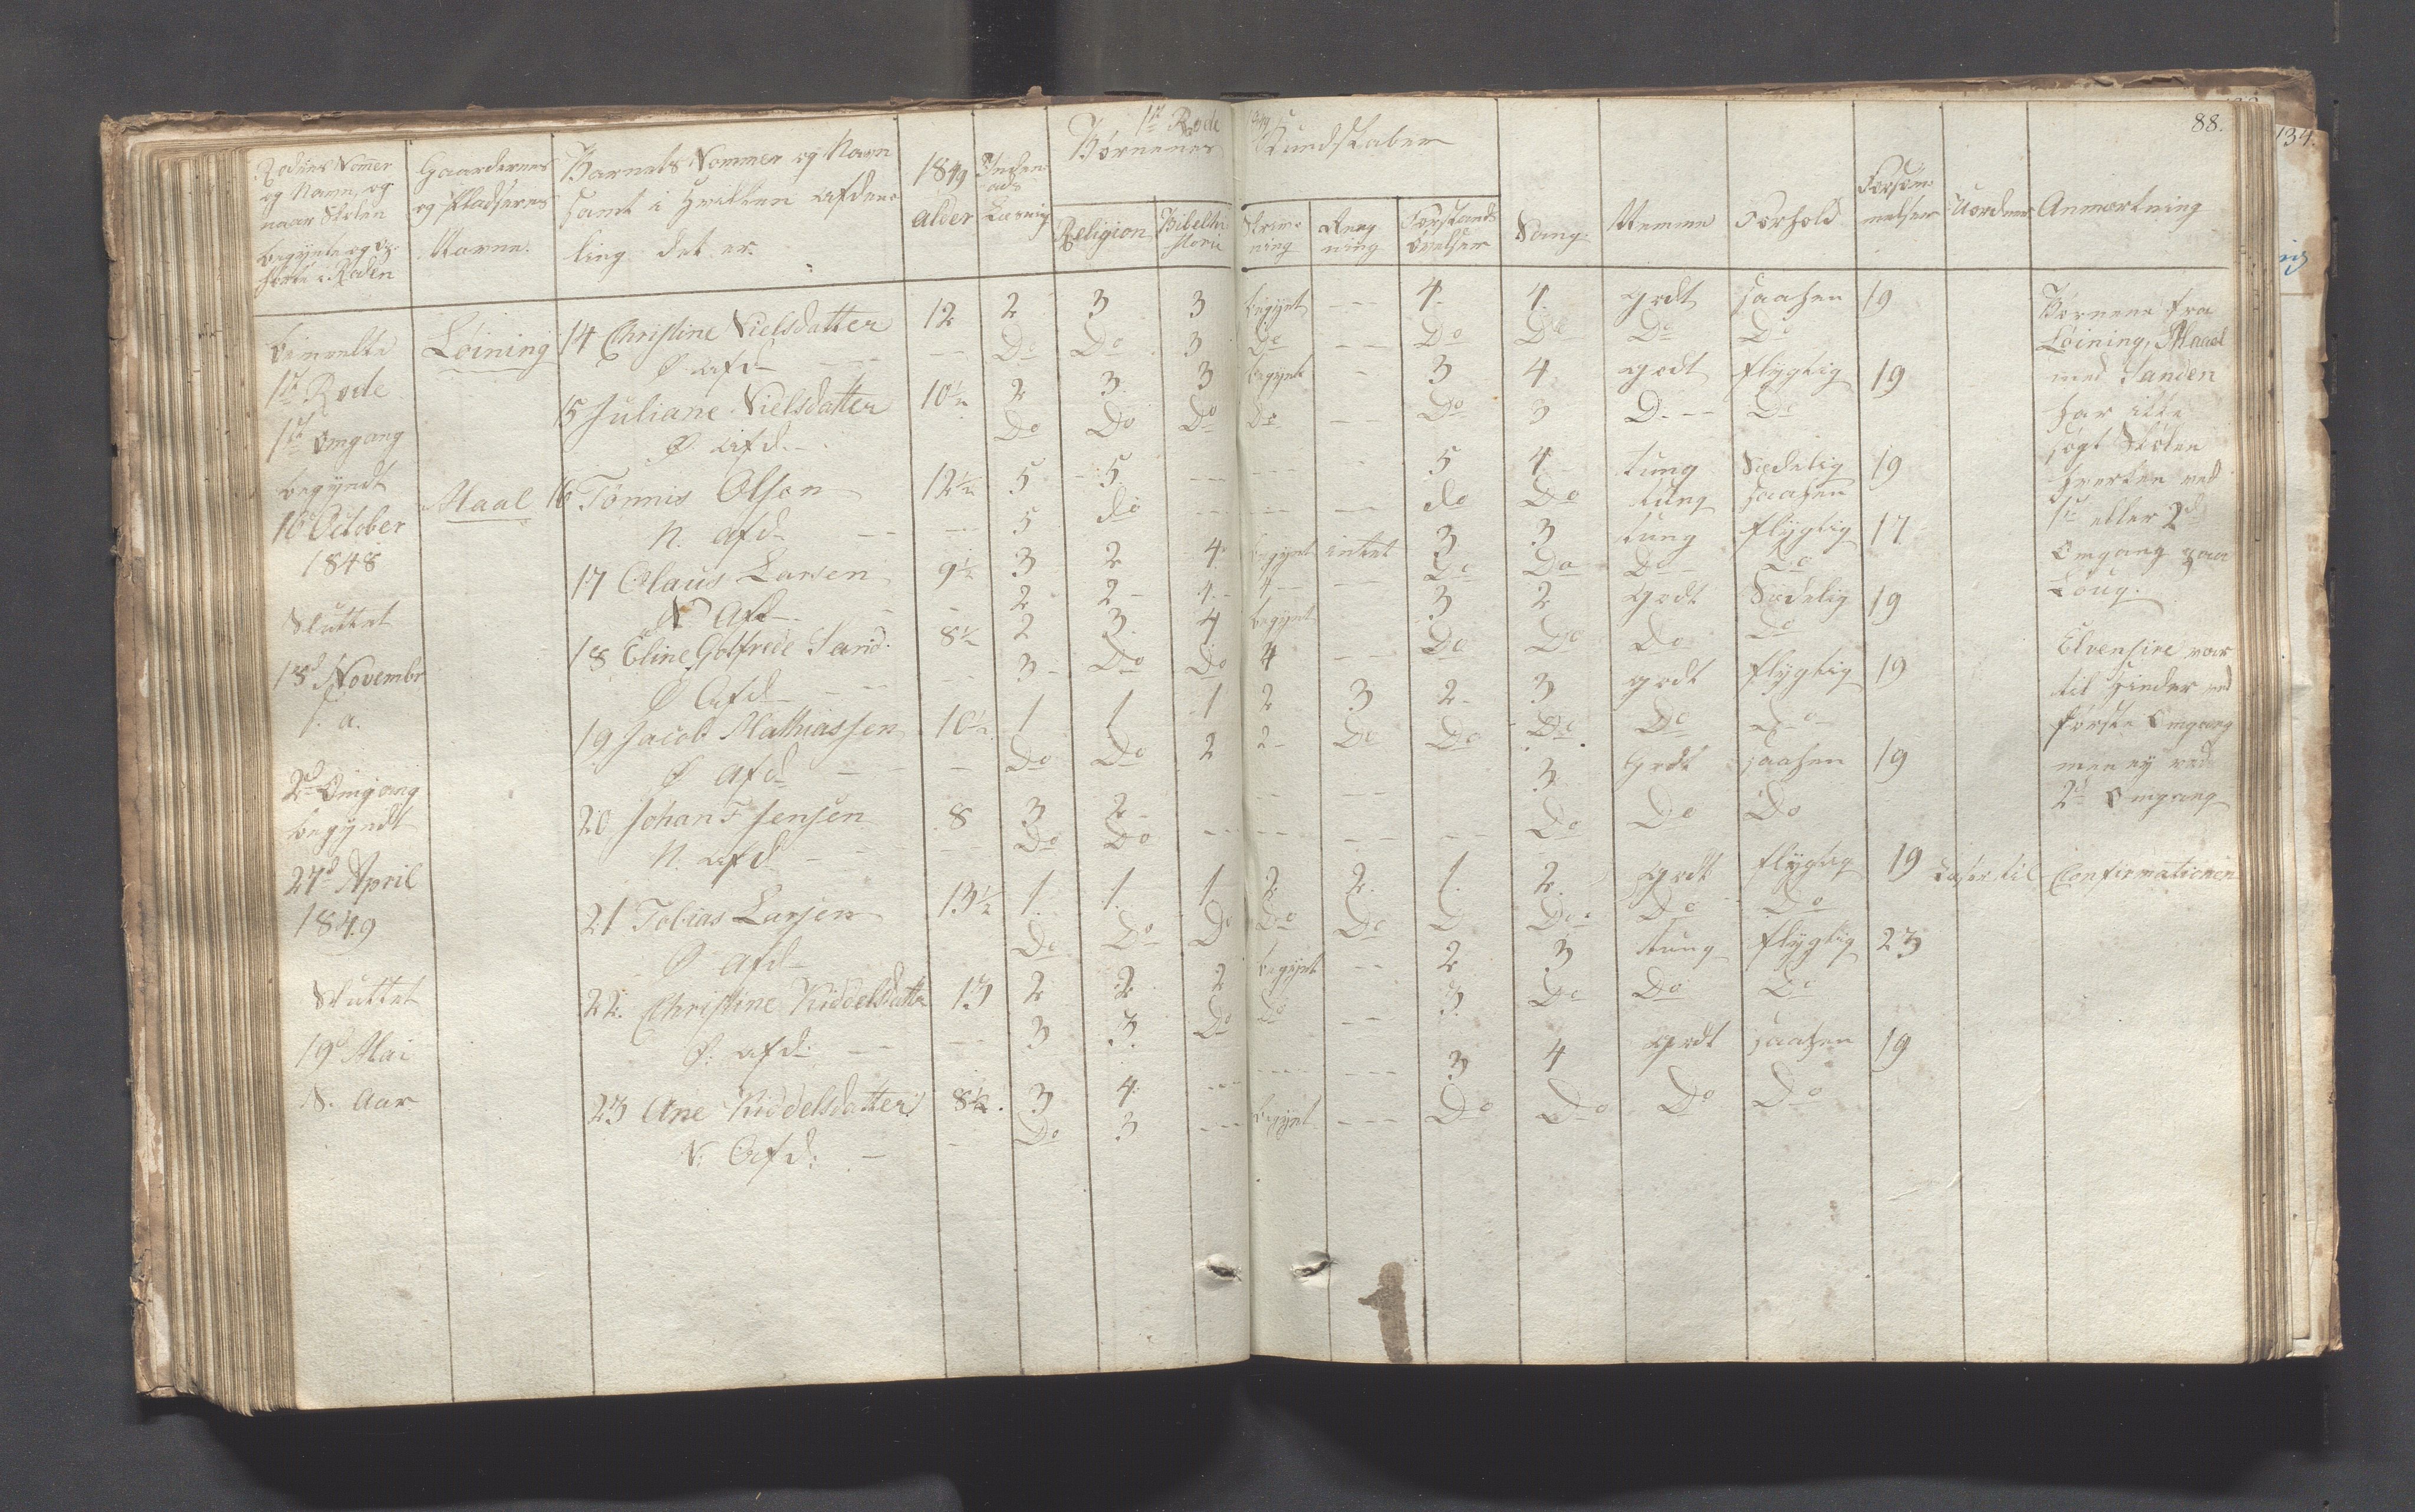 88.
134.
1ste Rode 1849
Børnenes Kundskaber
Rodens Nomer og Navn, og naar Skolen begyntes og op-hørte i Roden
Gaardernes og Pladsernes Navne.
Barnets Nommer og Navn samt i hvilken afdee-ling det er.
1849 alder
Inden-ads Læsning
Religion
Bibelhi-storie
Skriv-ning
Reg-ning
Forstands øvelser
Sang.
Nemme
Forhold
Forsøm-melser
Uordner
Anmærkning
bemeldte
1ste Rode
1ste Omgang
begyndt
16 October
1848
Sluttet
18d Novembr
s. a.
2d Omgang
begyndt
27d April
1849
Sluttet
19d Mai
S. Aar
Løining 14 Christine Nielsdatter 12 2 3 3 begynt -- 4 4 godt saahen 19
Ø afd -- Do Do 3 Do -- Do Do Do Do
15 Juliane Nielsdatter 10½ 2 3 3 begynt - 3 4 godt flygtig 19
Ø. afd. Do Do Do Do -- Do 3 D.-- Do
Maal 16 Tønnis Olsen 12½ 5 5 -- -- - 5 4 tung Sædelig 19
N. afd. -- 5 do -- -- -- do Do tung saahen
17 Olaus Larsen 9½ 3 2 4 begynt intet 3 3 tung flygtig 17
N Afd - 2 2 4 4 -- Do Do Do Do
18 Eline Gotfrede Sand. 8½ 2 3 4 begynt 3 2 godt Sædelig 19
Ø Afd -- 3 Do Do 4 -- Do Do Do Do
19 Jacob Mathiassen 10½ 1 1 1 2 3 2 3 godt flygtig 19
Ø afd -- Do Do 2 2 Do Do Do Do Do
20 Johan T Jensen 8 3 2 -- -- 3 godt saahen 19
N. afd -- Do Do -- -- -- -- Do Do Do
21 Tobias Larsen 13½ 1 1 1 2 2 1 2 godt flygtig 19 Læser til Confirmationen
Ø afd Do Do Do Do Do D Do Do Do
22. Christine Kiddelsdatter 13 2 2 2 begynt -- 2 3 tung flygtig 23
Ø. afd: -- 3 3 Do Do -- 3 Do Do Do
23 Ane Kiddelsdatter 8½. 3 4 -- --- --- 3 4 godt saahen 19
N: Afd: - Do 3 --- begynt --- Do Do Do Do
Børnene fra
Løining, Maal
med Sanden
har ikke
søgt Skolen
hverken ved
1ste eller 2d
Omgang paa
Loug.
Elvensire var
til Hinder ved
første Omgang
men ej ved
2d Omgang